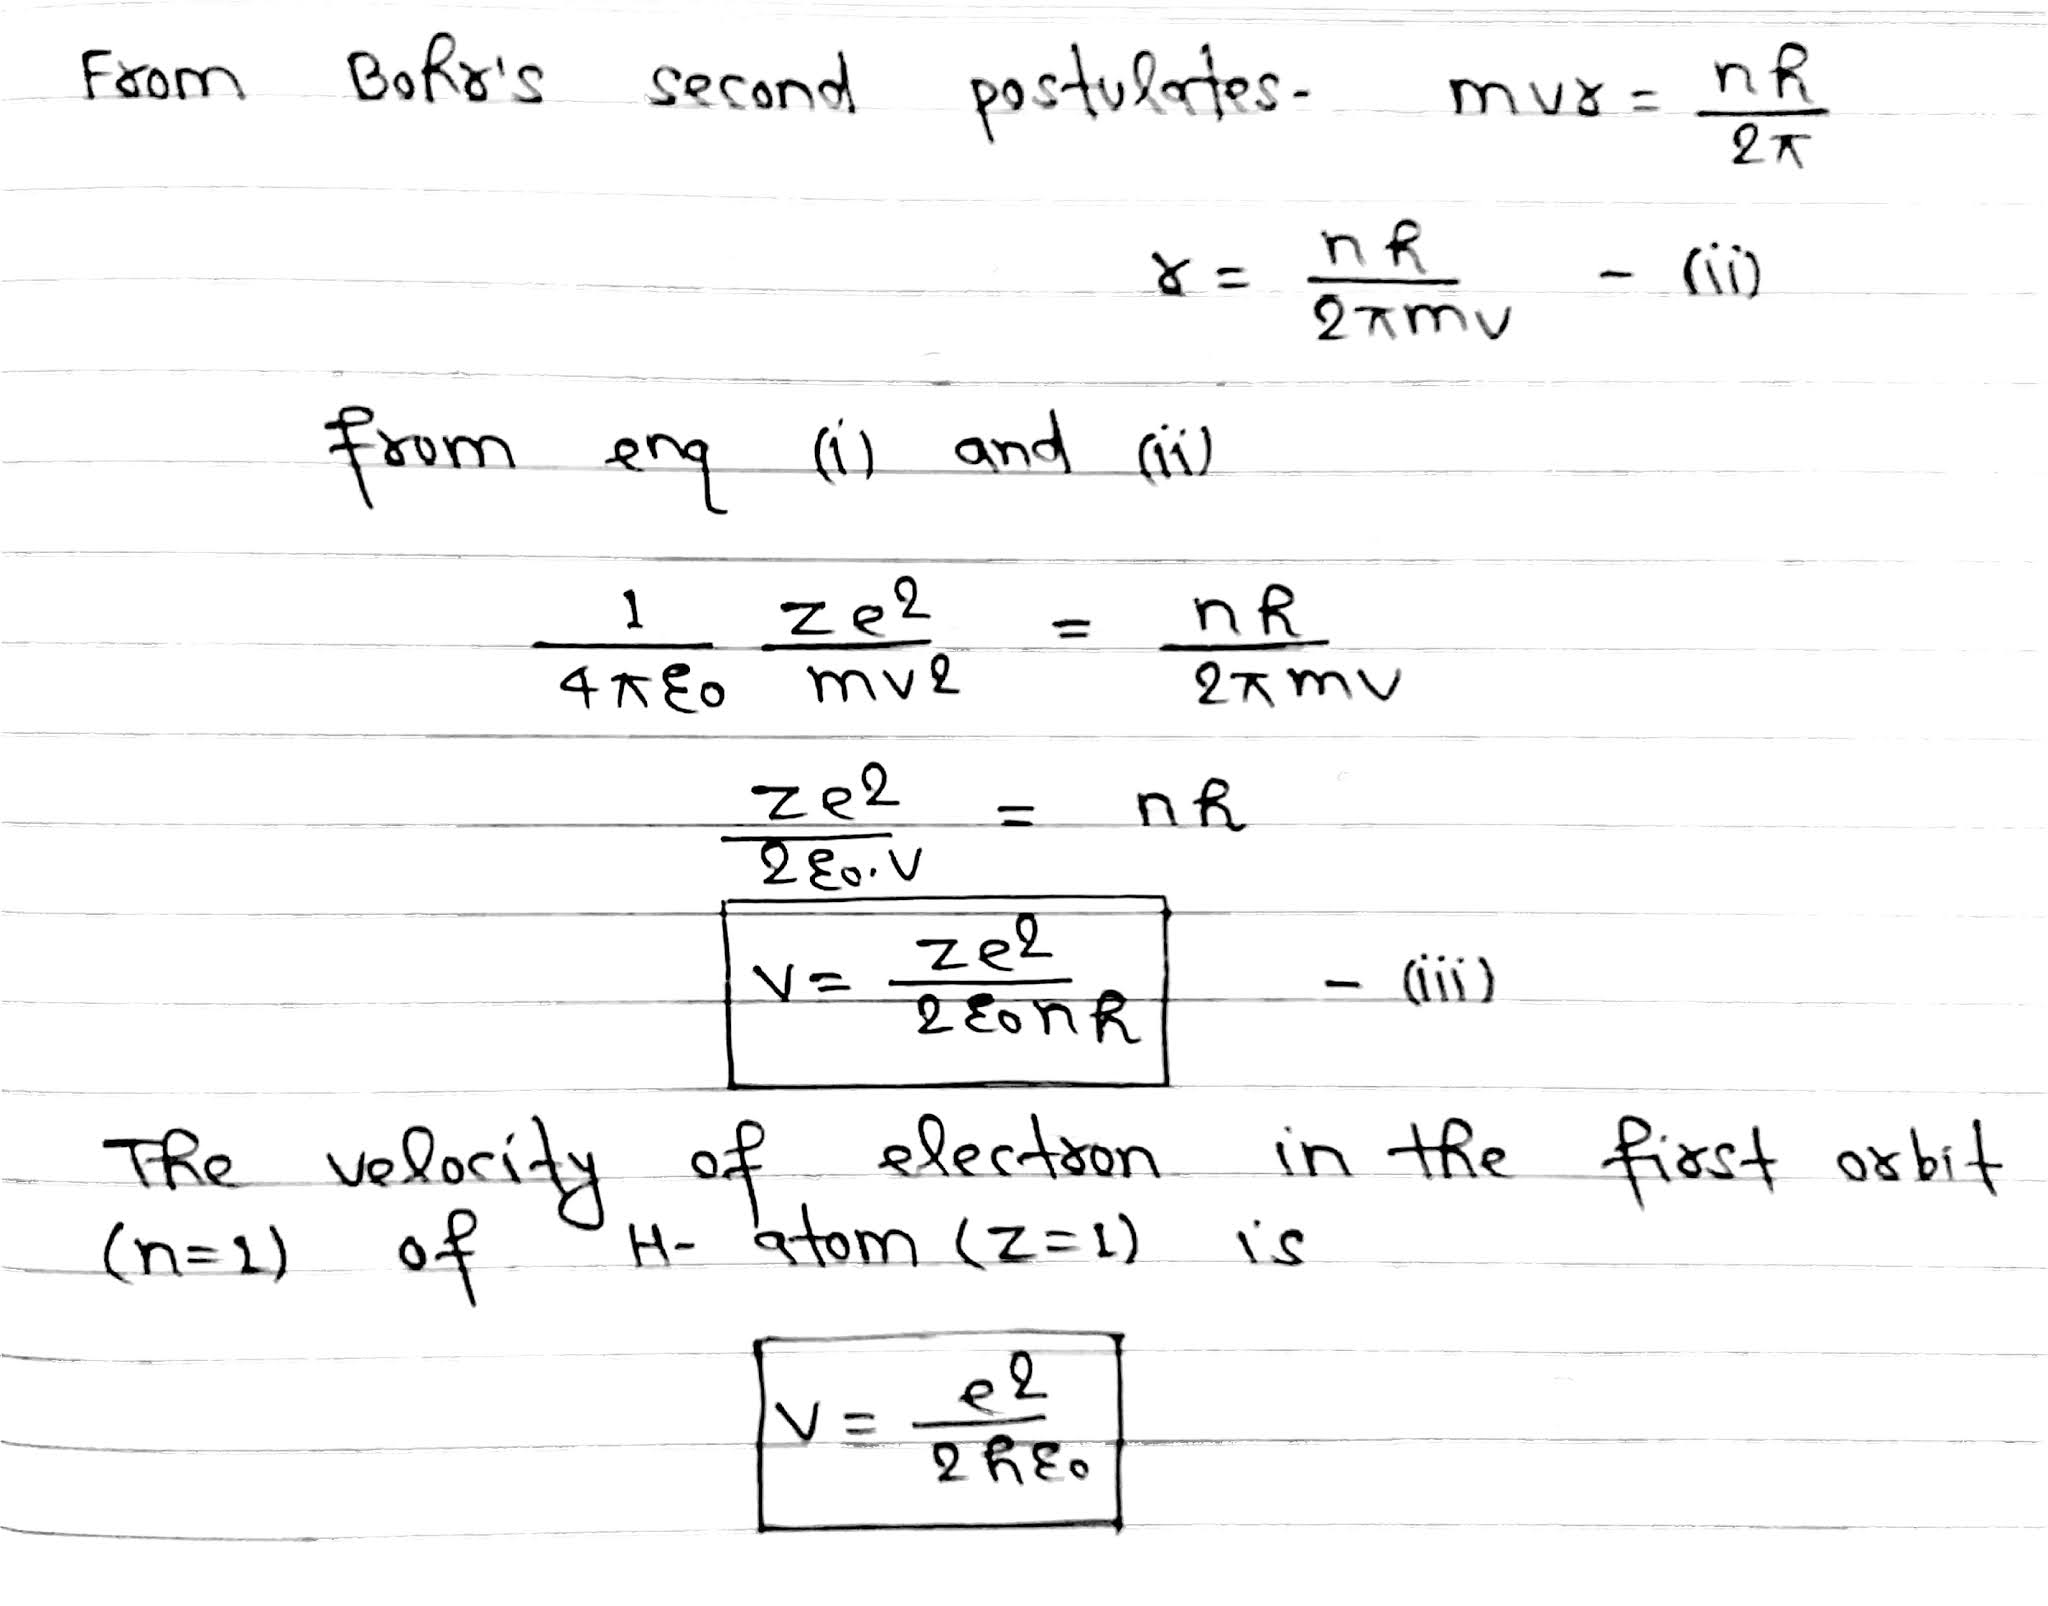 From Bohr's second postulates- mvr = nh/2π
r = nh/2πmv - (ii)
from enq (i) and (ii)
1/4πε0 ze2/mv2 = nh/2πmv
ze2/2ε0.v = nh
v = ze2/2ε0nh - (iii)
The velocity of electron in the first orbit
(n=1) of H- atom (z=1) is
v = e2/2hε0